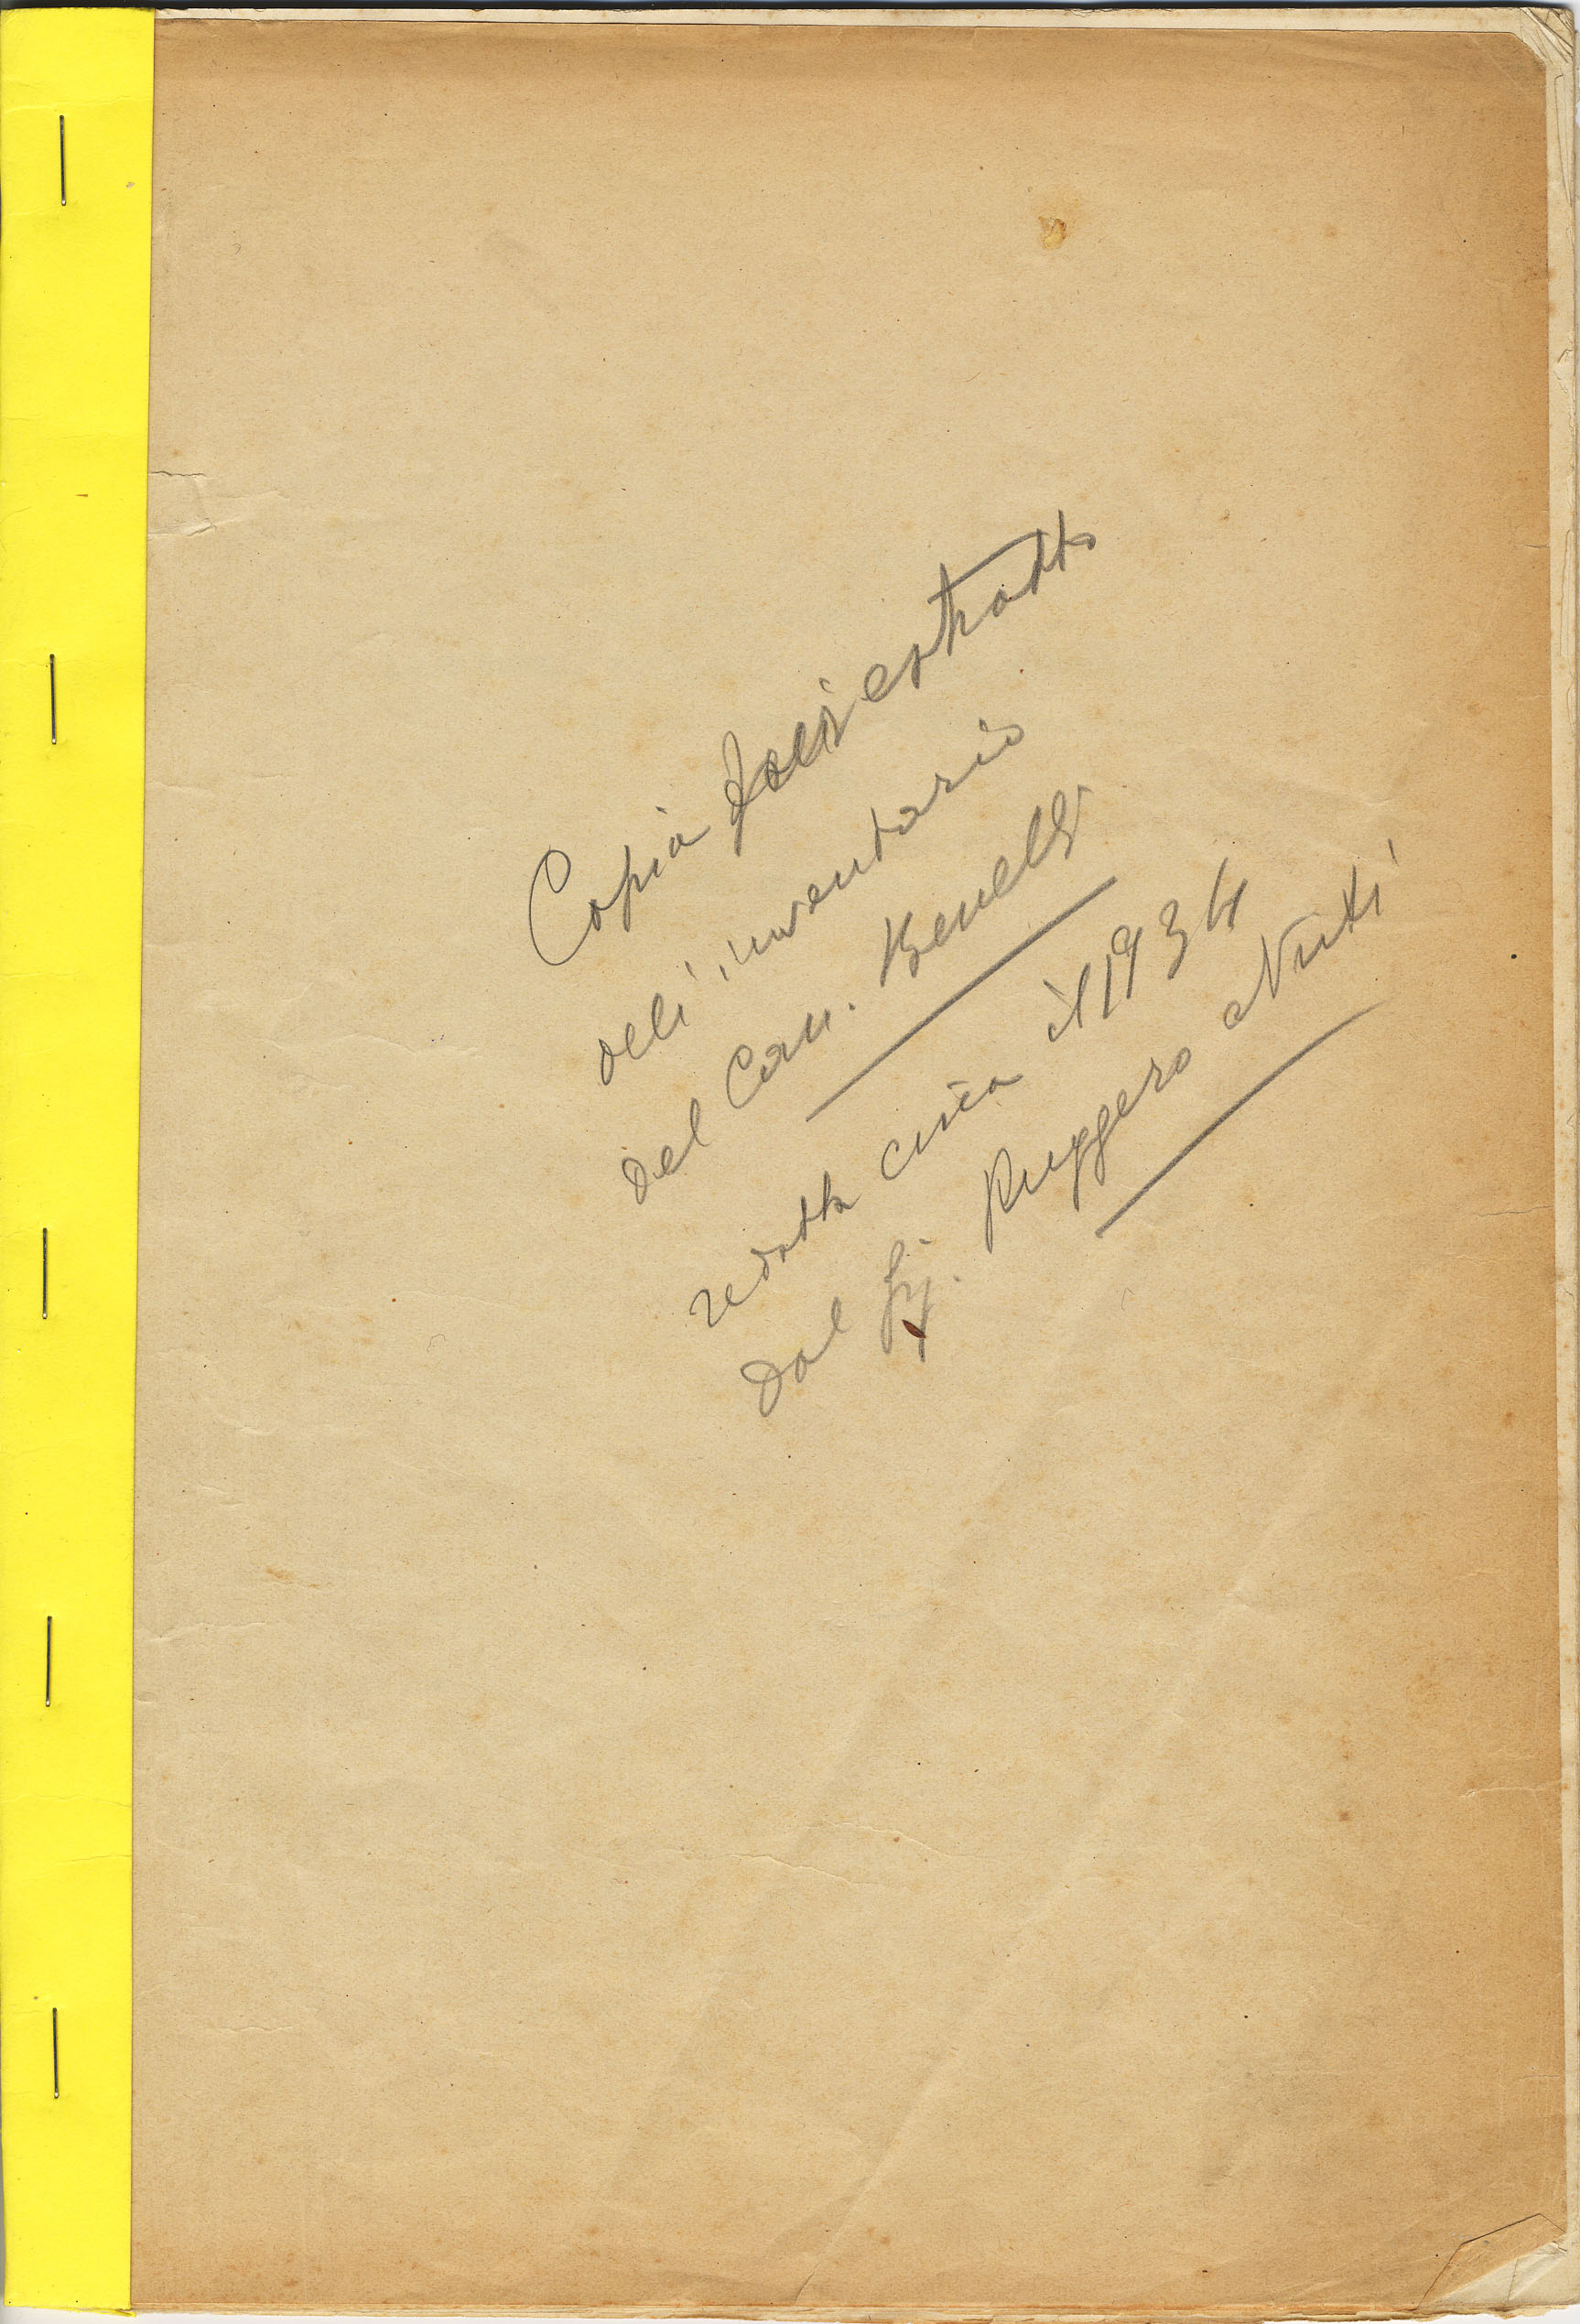 Copia dell'estratto
dell'inventario
del Can. Benelli
redatta circa il 1934
dal Sig. Ruggero Nuti